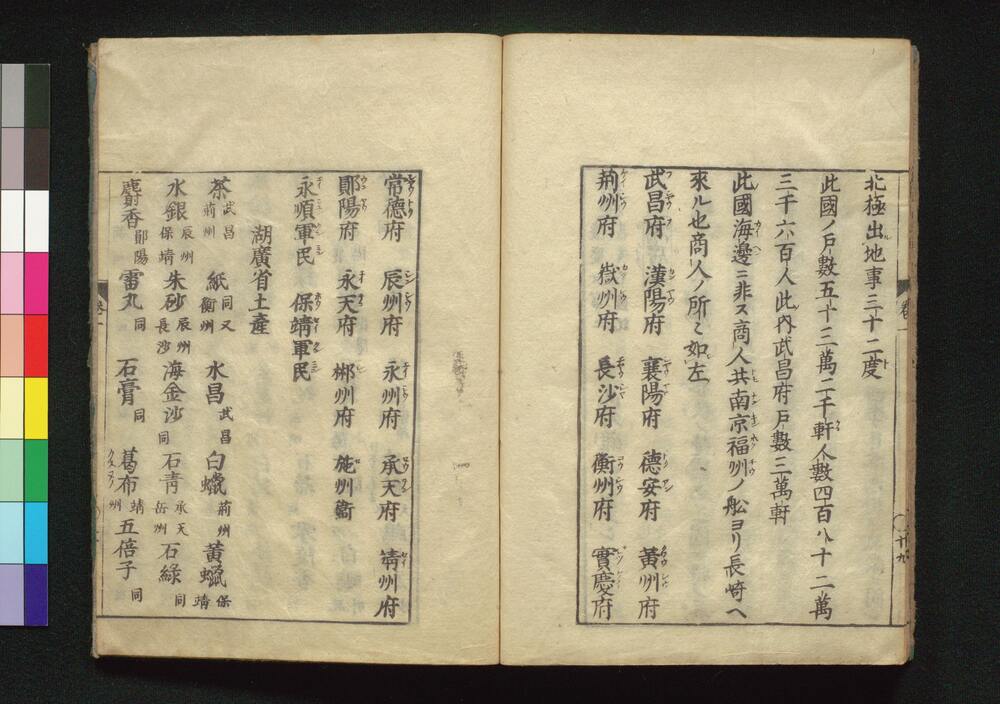 北極出地事三十二度
此國ノ戸數五十三萬二千軒人數四百八十二萬
三千六百人此内武昌府戸數三萬軒
此國海邊ニ非ス商人共南京福州ノ舩ヨリ長崎ヘ
來ル也商人ノ所〻如左
武昌府 漢陽府 襄陽府 德安府 黃州府
荊州府 嶽州府 長沙府 衡州府 寶慶府
常德府 辰州府 永州府 承天府 靖州府
鄖陽府 永天府 郴州府 施州衞
永順軍民 保靖軍民
湖廣省土產
茶 武昌 荊州 紙 同又 衡州 水昌 武昌 白蠟 荊州 黃蠟 保靖
水銀 辰州 保靖 朱砂 辰州 長沙 海金沙 同 石青 承天 岳州 石綠 同
麝香 鄖陽 雷丸 同 石膏 同 葛布 靖州 五倍子 同
卷一
廿九
卷一